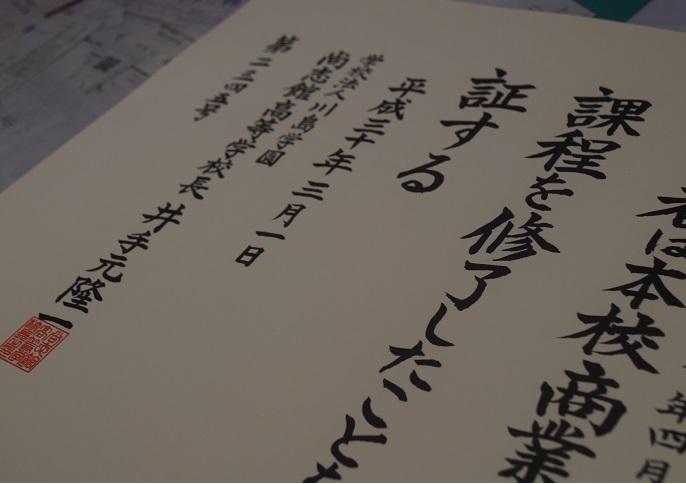 年四月
者は本校商業
課程を修了したことを
証する
平成三十年三月一日
学校法人川島学園
尚志館高等学校長 井手元隆一
第二三四五号